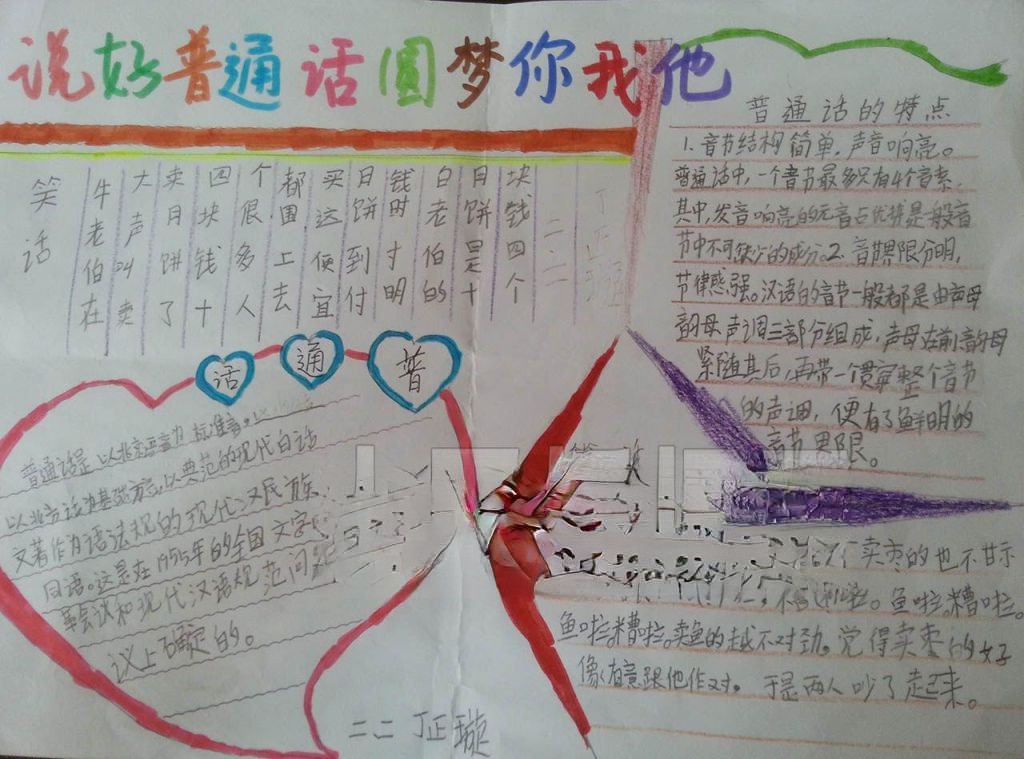 说好普通话圆梦你我他
普通话的特点
1.音节结构简单,声音响亮。
普通话中,一个音节最多只有4个音素,
其中,发音响亮的元音占优势是一般音
节中不可缺少的成分。2.音节界限分明,
节律感强。汉语的音节一般都是由声母
韵母声调三部分组成,声母在前韵母
紧随其后,再带一个贯穿整个音节
的声调,便有了鲜明的
音节界限。
笑话
牛老伯在
大声叫卖
卖月饼了
四块钱十
个很多人
都围上去
买这便宜
月饼到付
钱时才明
白老伯的
月饼是十
块钱四个
二二
丁正璇
普通话
普通话是以北京语音为标准音。
以北方话为基础方言,以典范的现代白话
文著作为语法规的现代汉民族
日语。这是在1955年的全国文字
革会议和现代汉语规范问
议上确定的。
卖枣的也不甘示
。鱼啦糟啦。
鱼啦糟啦。卖鱼的越不对劲。觉得卖枣的好
像有意跟他作对。于是两人吵了起来。
二二 丁正璇